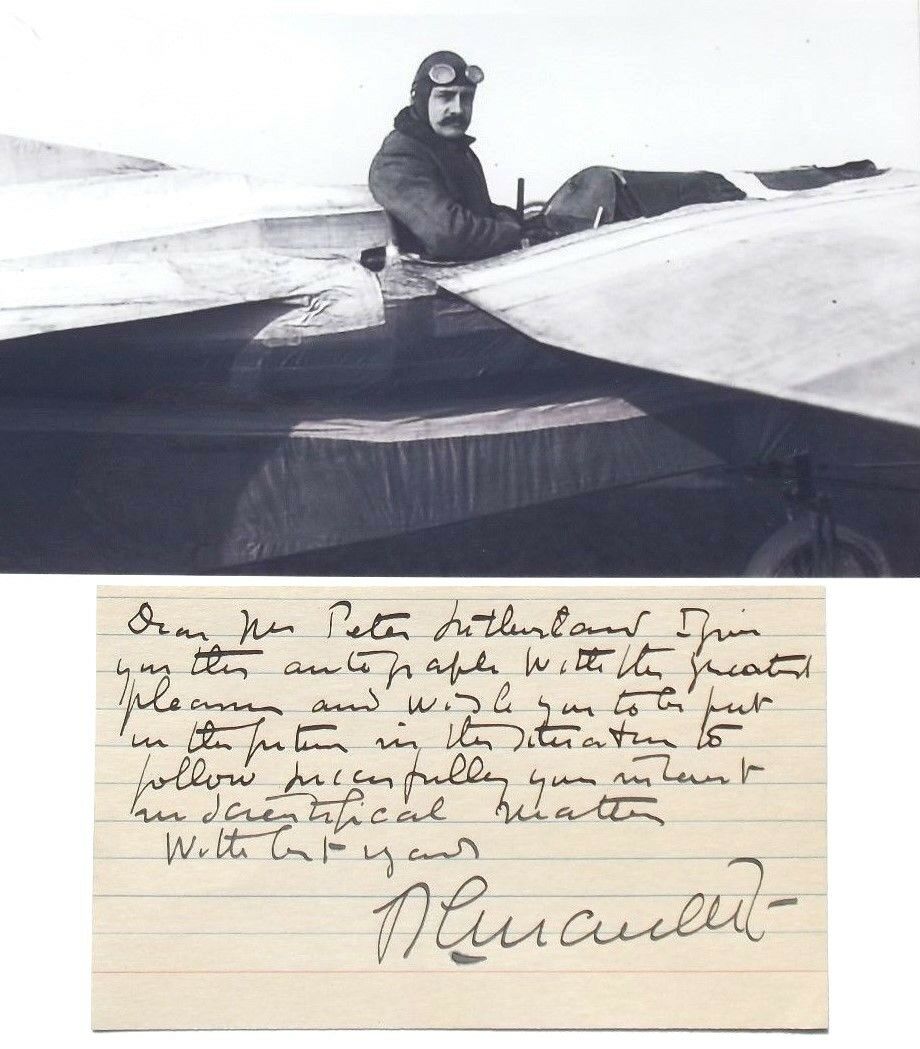 Dear Mr Peter Sutherland I give
you this autograph with the greatest
pleasure and wish you to be put
in the future in the situation to
follow succesfully your interest
in scientifical matters
With best regards